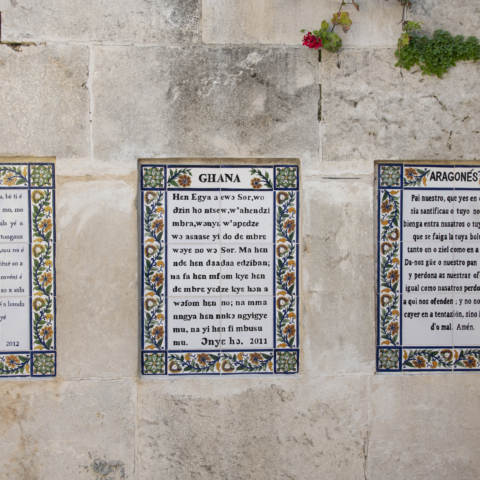 GHANA
Hen Egya a ɛwɔ Sor, wo
dzin ho ntsew, w'ahendzi
mbra, wɔnyɛ w'apɛdze
wɔ asaase yi do de mbrɛ
wɔyɛ no wɔ Sor. Ma hɛn
ndɛ hɛn daadaa edziban;
na fa hɛn mfom kyɛ hɛn
de mbrɛ yɛdze kyɛ hɔn a
wɔfom hɛn no; na mma
nngya hɛn nnkɔ ngyigye
mu, na yi hɛn fi mbusu
mu. Ɔnyɛ hɔ. 2011
ARAGONÉS
Pai nuestro, que yes en o
sía santificau o tuyo no
bienga entre nusatros o tuy
que se faiga la tuya bolu
tanto en o ziel como en a
Da-nos güe o nuestro pan
y perdona as nuestras of
igual como nusatros perdo
a qui nos ofenden; y no no
cayer en a tentazión, sino
d'o mal. Amén.
2012